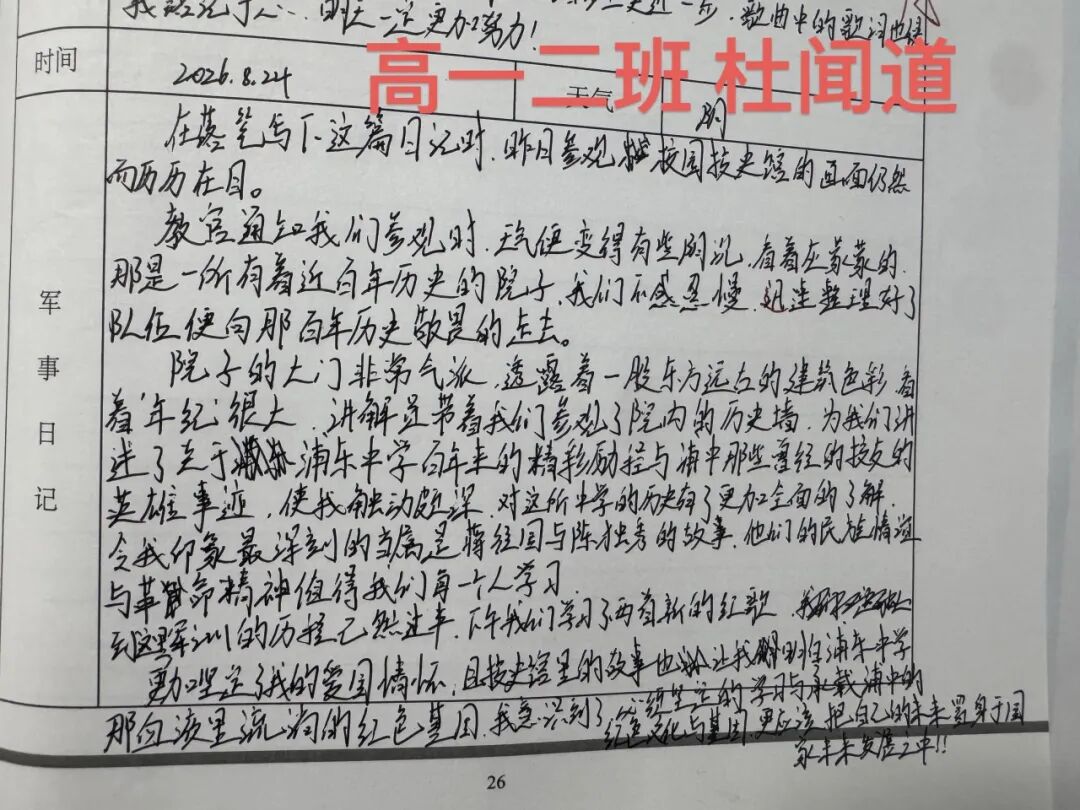 我 记于心，明天一定更加努力！ 更近一步，歌曲中的歌词也
高一二班 杜闻道
时间 2026.8.24 天气 阴
军事日记
在落笔写下这篇日记时，昨日参观 校园校史馆的画面仍然
而历历在目。
教官通知我们参观时，天气便变得有些阴沉，看着灰蒙蒙的，
那是一所有着近百年历史的院子，我们不感怠慢，迅速整理好了
队伍便向那百年历史敬畏的走去。
院子的大门非常气派，透露着一股东方远古的建筑色彩 看
着'年纪'很大，讲解员带着我们参观了院内的历史墙，为我们讲
述了关于 浦东中学百年来的精彩历程与浦中那些曾经的校友的
英雄事迹，使我触动颇深，对这所中学的历史有了更加全面的了解，
令我印象最深刻的当属是蒋经国与陈独秀的故事，他们的民族情谊
与革命精神值得我们每一个人学习
到这军训的历程已然过半，下午我们学习了两首新的红歌
更加坚定了我的爱国情怀，且校史馆里的故事也 让我 浦东中学
那血液里流淌的红色基因，我意识到了 坚定的学习与承载浦中的
红色文化与基因，更应该把自己的未来置身于国
家未来发展之中!!
26